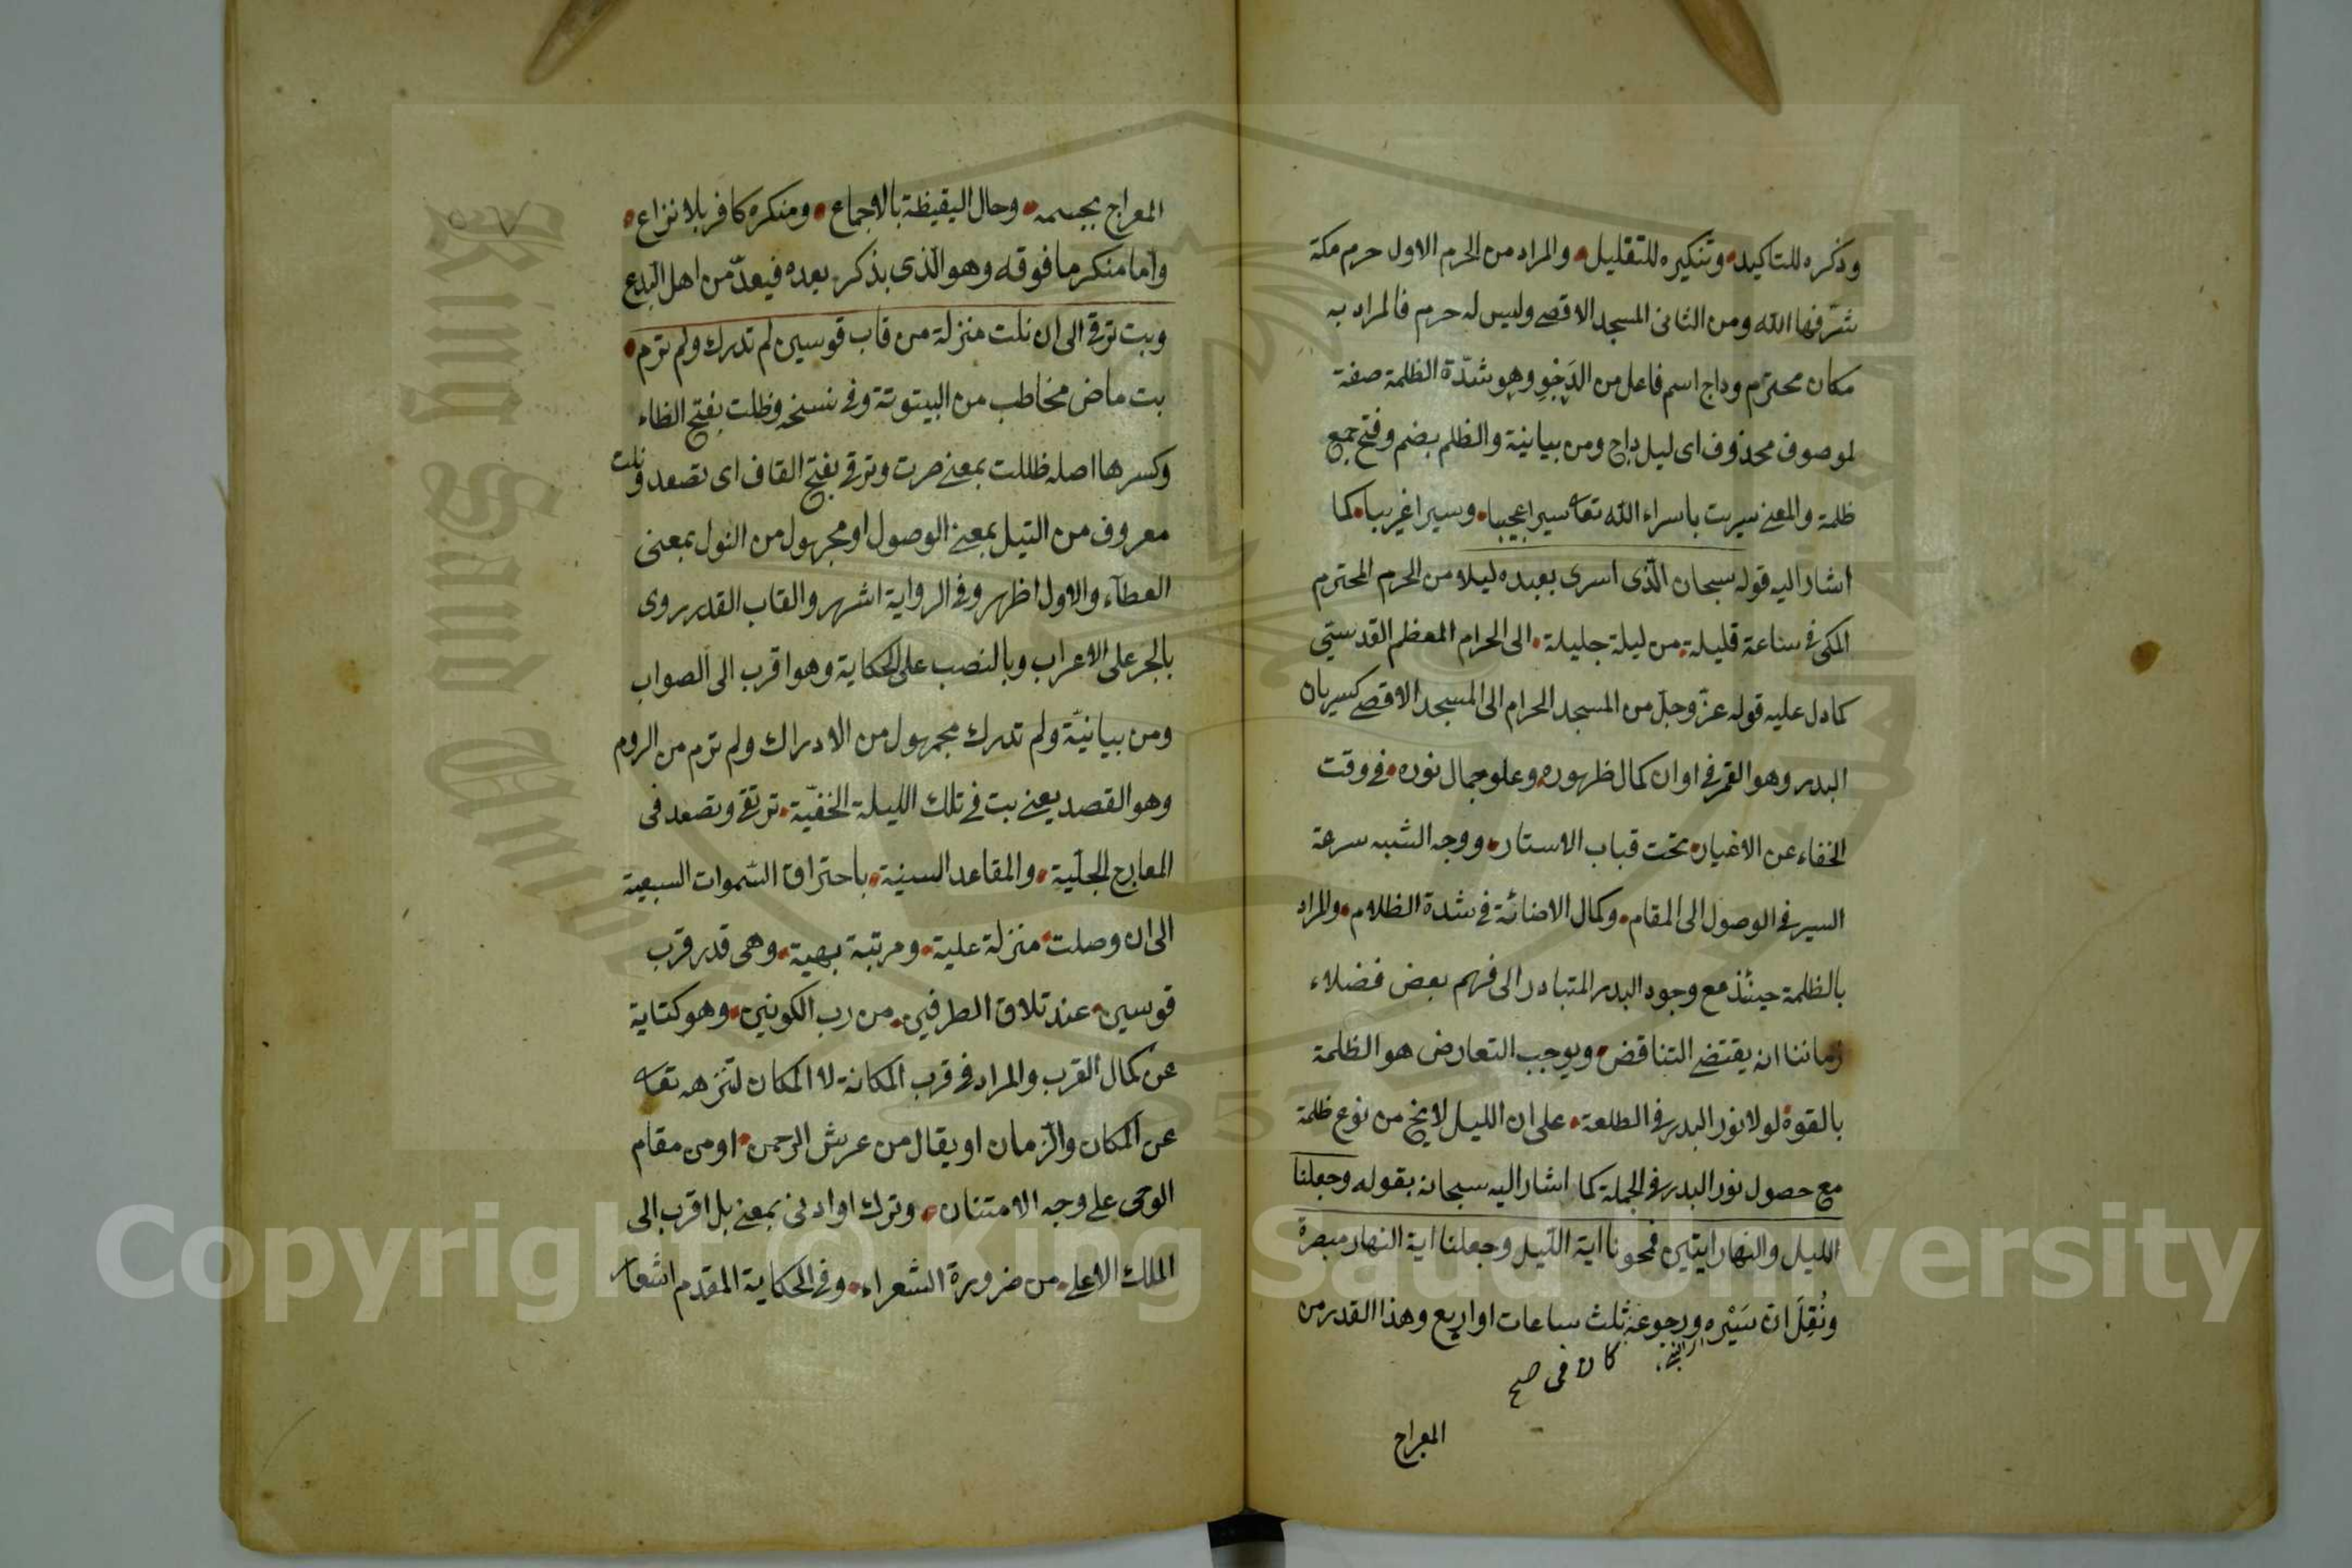 وذكره للتاكيد وتنكيره للتقليل والمراد من الحرم الاول حرم مكة
شرفها الله ومن الثانى المسجد الاقصى وليس له حرم فالمراد به
مكان محترم وداج اسم فاعل من الدجو وهو شدة الظلمة صفة
لموصوف محذوف اى ليل داج ومن بيانية والظلم بضم وفتح جمع
ظلمة والمعنى سريت باسراء الله تعا سيرا عجيبا وسيرا غريبا كما
اشار اليه قوله سبحان الذى اسرى بعبده ليلا من الحرم المحترم
المكى فى ساعة قليلة من ليلة جليلة الى الحرام المعظم القدستي
كما دل عليه قوله عز وجل من المسجد الحرام الى المسجد الاقصى كسريان
البدر وهو القمر فى اوان كمال ظهوره وعلو جمال نوره فى وقت
الخفاء عن الاغيار تحت قباب الاستار ووجه الشبه سرعة
السير فى الوصول الى المقام وكمال الاضائة فى شدة الظلام والمراد
بالظلمة حينئذ مع وجود البدر المتبادر الى فهم بعض فضلاء
زماننا انه يقتضى التناقض ويوجب التعارض هو الظلمة
بالقوة لولا نور البدر فى الطلعة على ان الليل لا يخ من نوع ظلمة
مع حصول نور البدر فى الجملة كما اشار اليه سبحانه بقوله وجعلنا
الليل والنهار ايتين فمحونا اية الليل وجعلنا اية النهار مبصرة
ونقل ان سيره ورجوعه ثلث ساعات او اربع وهذا القدر من
كان فى صح
المعراج
المعراج بجسمه وحال اليقيظة بالاجماع ومنكره كافر بلا نزاع
واما منكر ما فوقه وهو الذى بذكر بعده فيعد من اهل البدع
وبت ترقى الى ان نلت منزلة من قاب قوسين لم تدرك ولم ترم
بت ماض مخاطب من البيتوتة وفى نسخة وظلت بفتح الظاء
وكسرها اصله ظللت بمعنى صرت وترقى بفتح القاف اى تصعد ونلت
معروف من النيل بمعنى الوصول او مجهول من النول بمعنى
العطاء والاول اظهر وفى الرواية اشهر والقاب القدر روى
بالجر على الاعراب وبالنصب على الحكاية وهو اقرب الى الصواب
ومن بيانية ولم تدرك مجهول من الادراك ولم ترم من الروم
وهو القصد يعنى بت فى تلك الليلة الخفية ترتقى وتصعد فى
المعارج الجلية والمقاعد السنية باحتراق السموات السبعية
الى ان وصلت منزلة علية ومرتبة بهية وهى قدر قرب
قوسين عند تلاق الطرفين من رب الكونين وهو كناية
عن كمال القرب والمراد فى قرب المكانة لا المكان لتنزهه تعا
عن المكان والزمان او يقال من عرش الرحمن او من مقام
الوحى على وجه الامتنان وترك او ادنى بمعنى بل اقرب الى
الملك الاعلى من ضرورة الشعراء وفى الحكاية المقدم اشعار
Copyright © King Saud University
King Saud University
1957